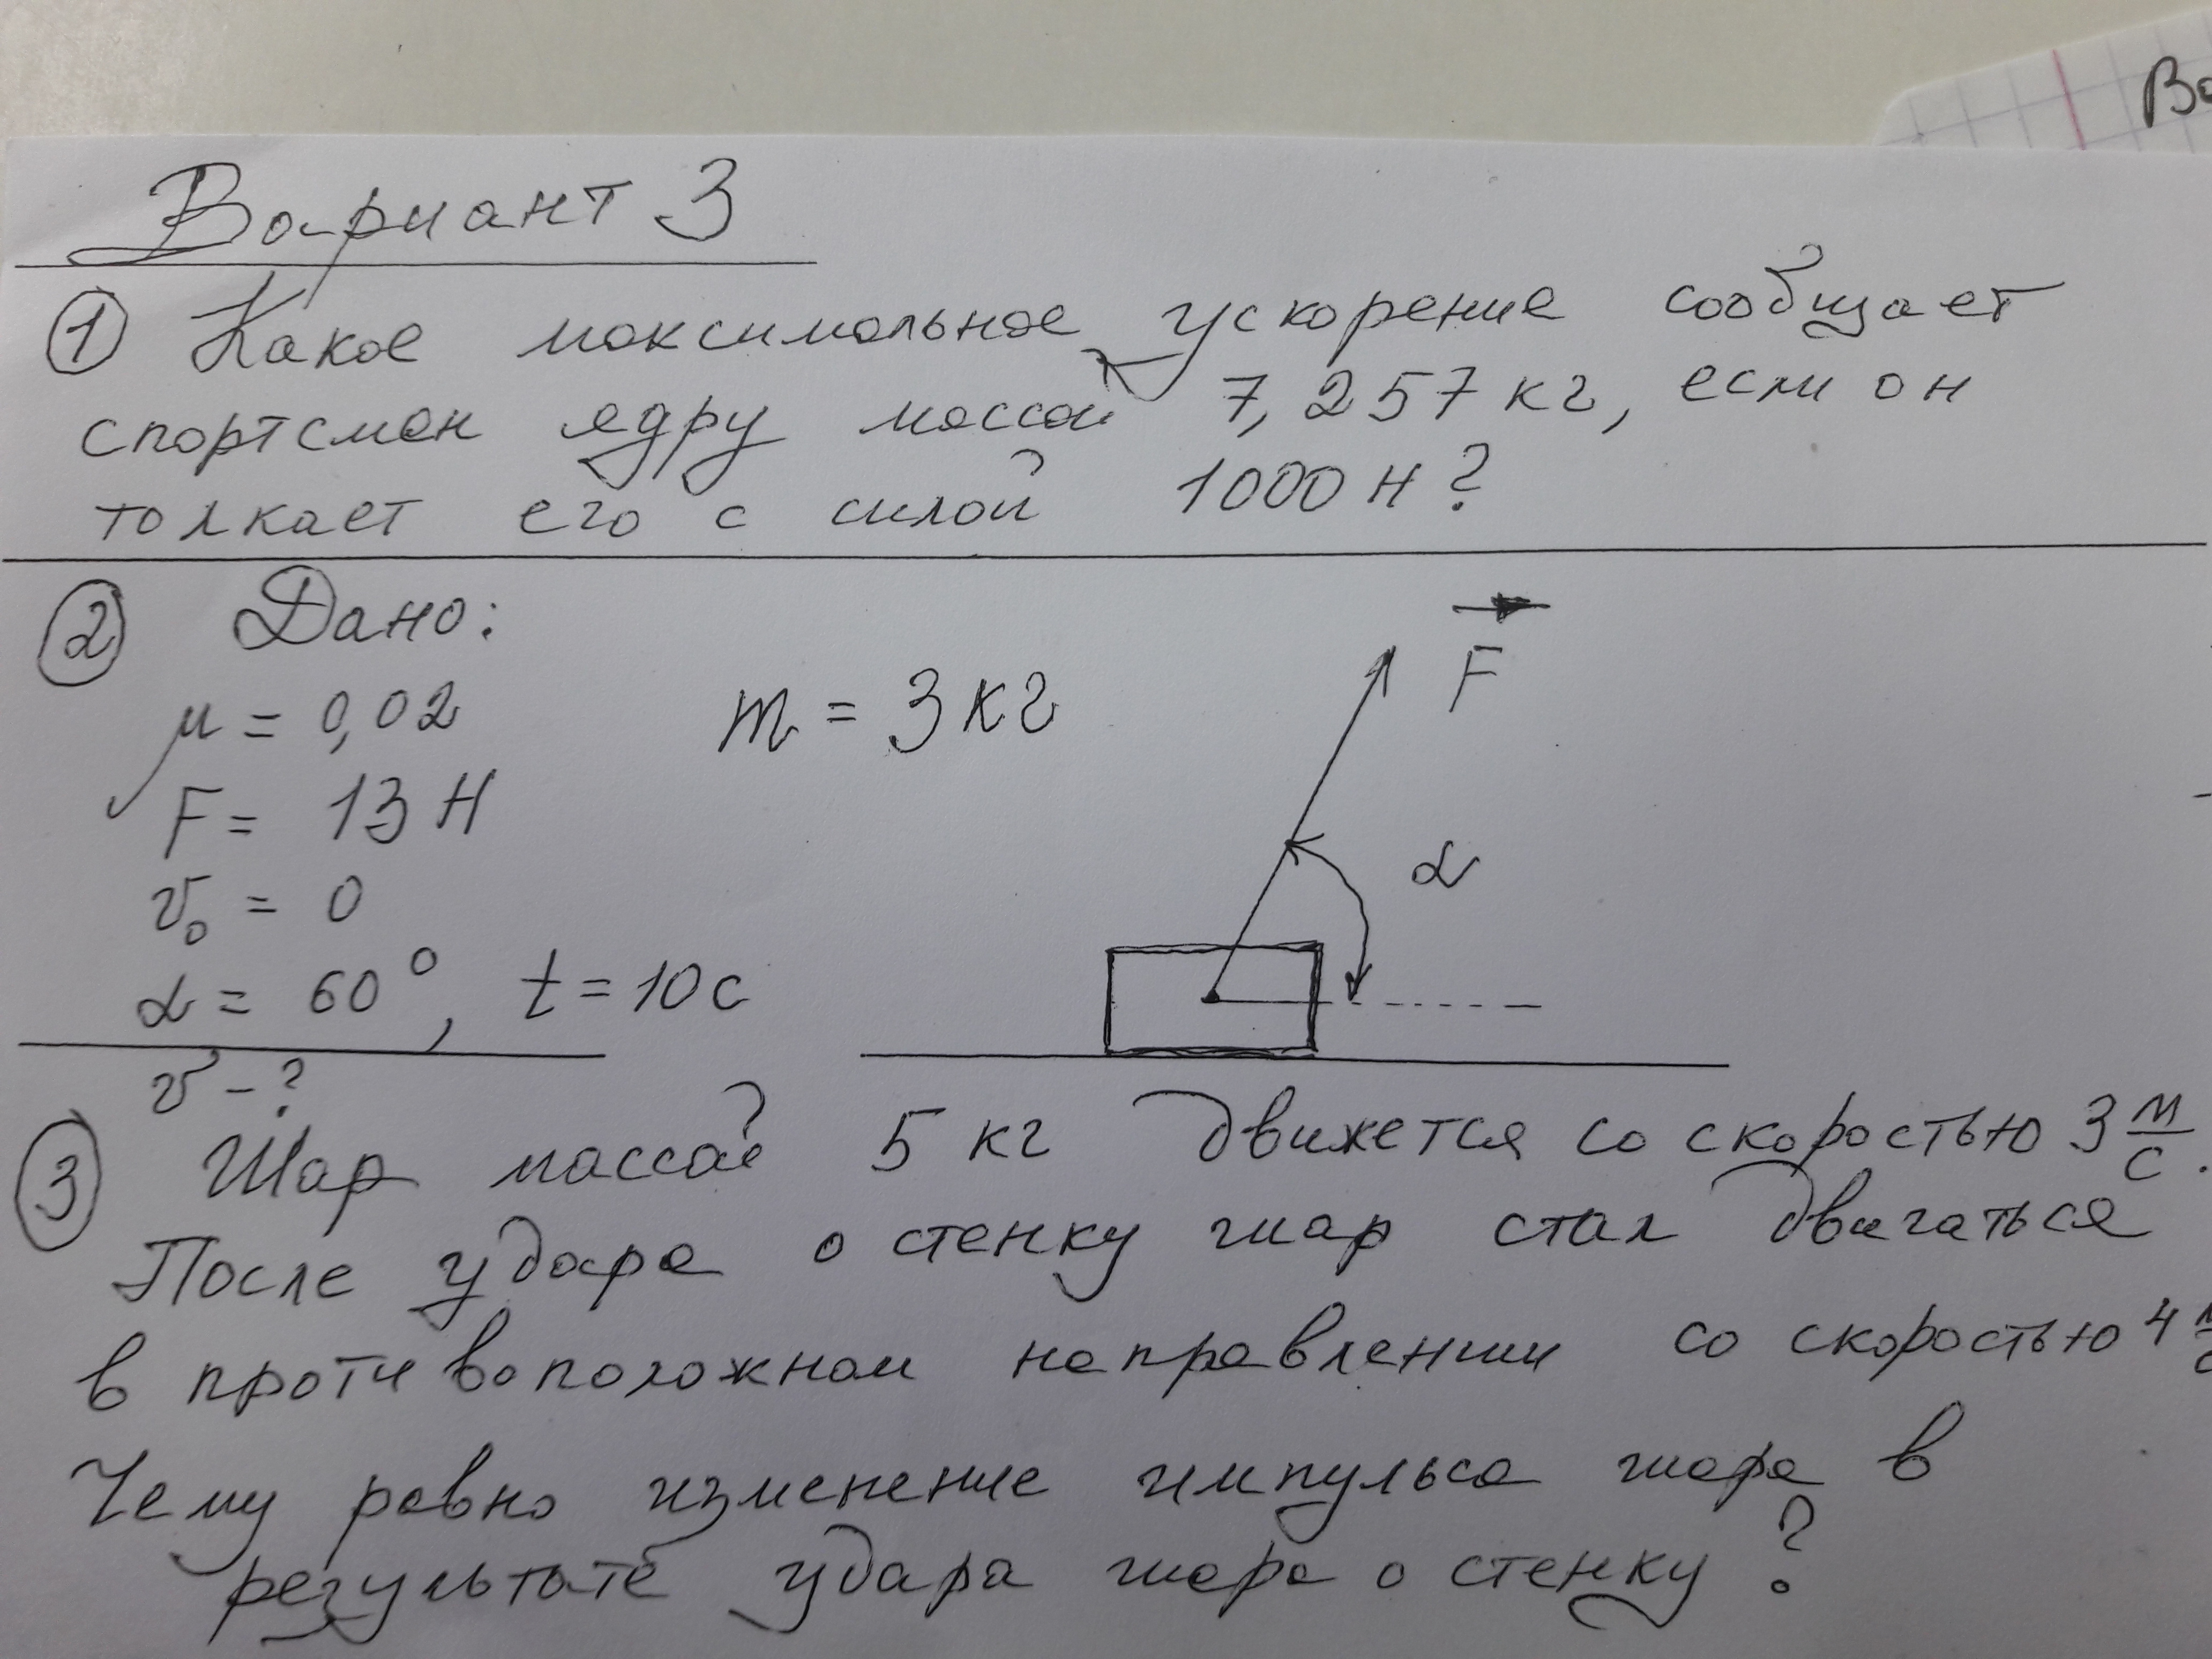 Во
Вариант 3
① Какое максимальное ускорение сообщает
спортсмен ядру массой 7,257 кг, если он
толкает его с силой 1000 Н?
② Дано:
μ = 0,02 m = 3 кг
F = 13 Н
v₀ = 0
α = 60°, t = 10 с
v - ?
F
α
③ Шар массой 5 кг движется со скоростью 3 м/с.
После удара о стенку шар стал двигаться
в противоположном направлении со скоростью 4 м/с
Чему равно изменение импульса шара в
результате удара шара о стенку?